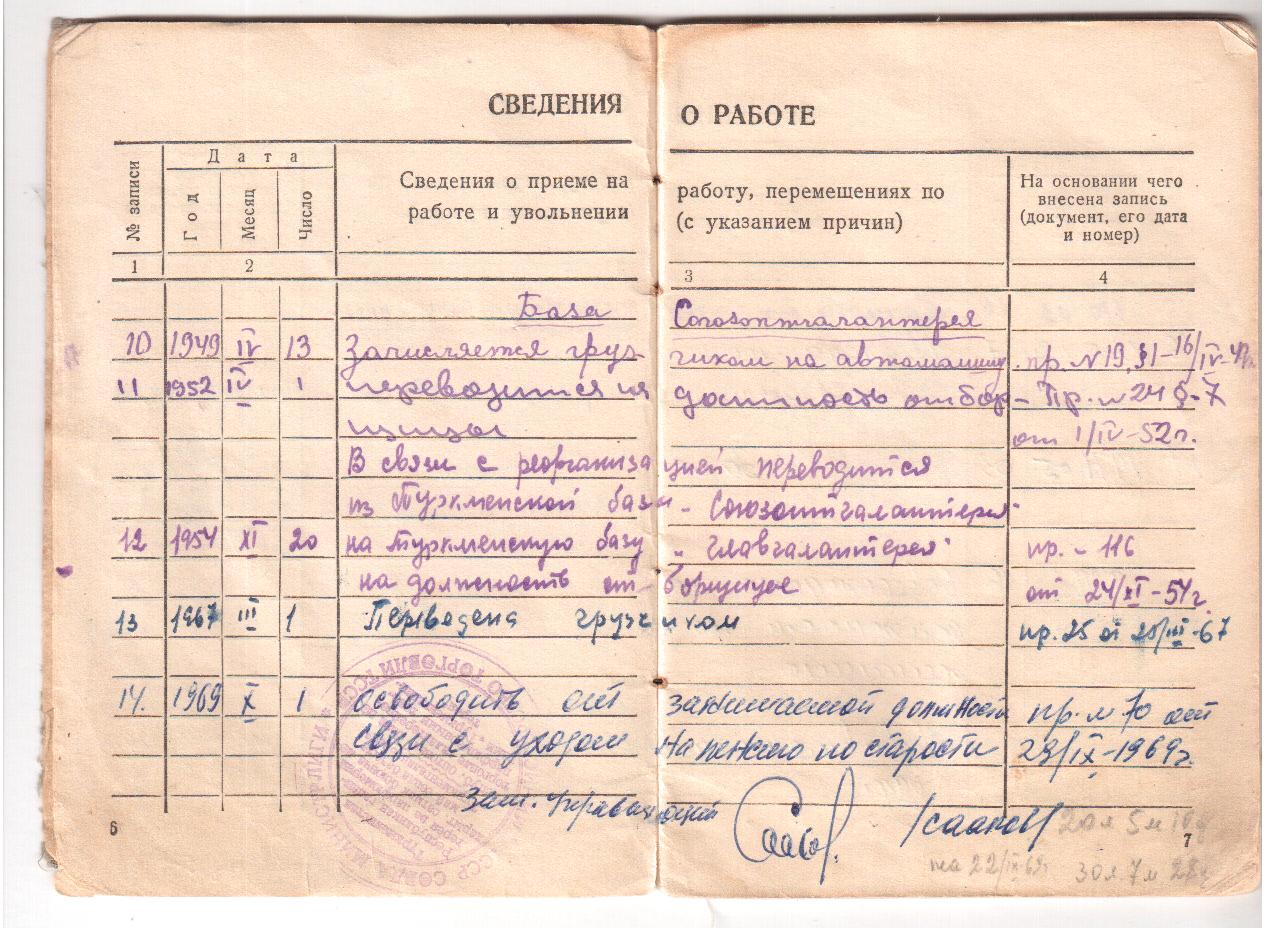 СВЕДЕНИЯ О РАБОТЕ
№ записи
Дата
Год
Месяц
Число
Сведения о приеме на работу, перемещениях по
работе и увольнении (с указанием причин)
На основании чего
внесена запись
(документ, его дата
и номер)
1 2 3 4
База Союзоптгалантерея
10 1949 IV 13 Зачисляется груз- чиком на автомашину пр. №19, §1-16/IV-49г.
11 1952 IV 1 переводится на должность отбор- Пр. №24 §-7
щицы от 1/IV-52г.
В связи с реорганизацией переводится
из Туркменской базы „Союзоптгалантерея"
12 1954 XI 20 на Туркменскую базу „Главгалантерея" пр. - 116
на должность от- борщицы от 24/XI-54г.
13 1967 III 1 Переведена грузчиком пр. 25 от 25/III-67
14. 1969 X 1 освободить от занимаемой должности пр. № 70 от
связи с уходом на пенсию по старости 29/IX-1969г.
Зам. Управляющий
6
7
20л 5м
на 22/IX 69г
30л. 7м